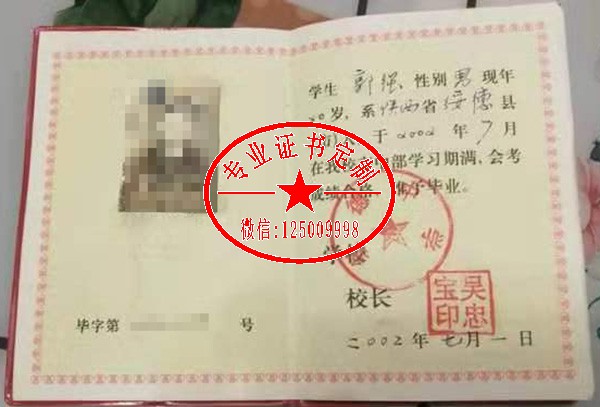 学生 郭强 性别 男 现年
二0岁，系 陕西省 绥德 县
人 于 2002 年 7 月
在我校 部学习期满，会考
成绩合格 准于毕业。
学校
校长
二002年 七月一日
毕字第 号
吴忠宝印
专业证书定制
微信:125009998